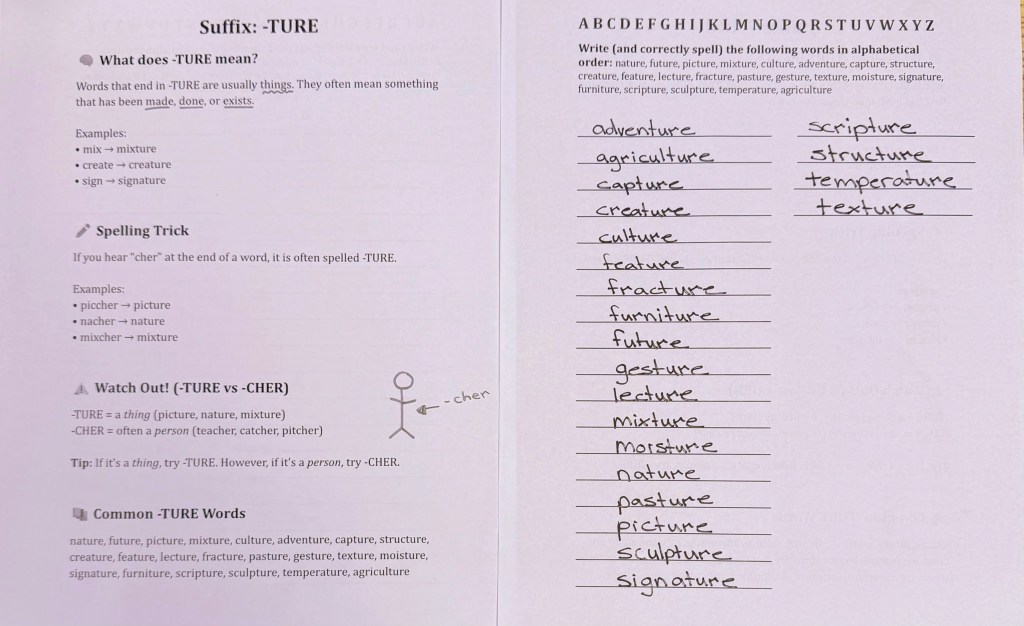 Suffix: -TURE
What does -TURE mean?
Words that end in -TURE are usually things. They often mean something
that has been made, done, or exists.
Examples:
• mix → mixture
• create → creature
• sign → signature
Spelling Trick
If you hear "cher" at the end of a word, it is often spelled -TURE.
Examples:
• piccher → picture
• nacher → nature
• mixcher → mixture
Watch Out! (-TURE vs -CHER)
-TURE = a thing (picture, nature, mixture)
-CHER = often a person (teacher, catcher, pitcher)
- cher
Tip: If it's a thing, try -TURE. However, if it's a person, try -CHER.
Common -TURE Words
nature, future, picture, mixture, culture, adventure, capture, structure,
creature, feature, lecture, fracture, pasture, gesture, texture, moisture,
signature, furniture, scripture, sculpture, temperature, agriculture
A B C D E F G H I J K L M N O P Q R S T U V W X Y Z
Write (and correctly spell) the following words in alphabetical
order: nature, future, picture, mixture, culture, adventure, capture, structure,
creature, feature, lecture, fracture, pasture, gesture, texture, moisture, signature,
furniture, scripture, sculpture, temperature, agriculture
adventure
agriculture
capture
creature
culture
feature
fracture
furniture
future
gesture
lecture
mixture
moisture
nature
pasture
picture
sculpture
signature
scripture
structure
temperature
texture